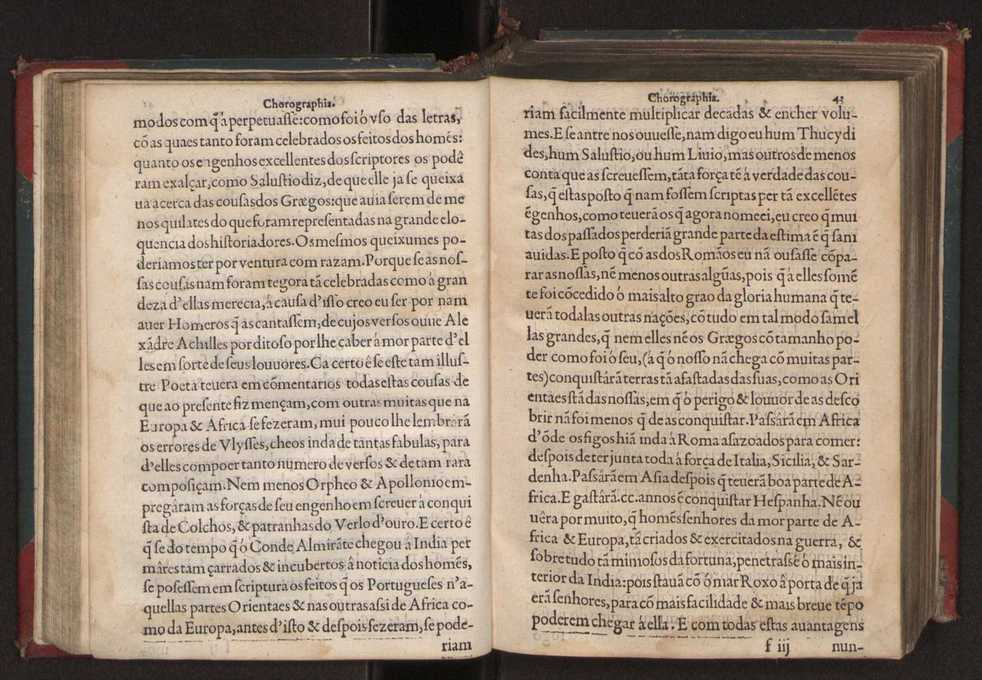 Chorographia.
modos com q̃ à perpetuasse: como foi ò vso das letras,
cõ as quaes tanto foram celebrados os feitos dos homẽs:
quanto os engenhos excellentes dos scriptores os podê
ram exalçar, como Salustio diz, de que elle ja se queixa
ua acerca das cousas dos Grægos: que auia serem de me
nos quilates do que foram representadas na grande elo-
quencia dos historiadores. Os mesmos queixumes po-
deriamos ter por ventura com razam. Porque se as nos-
sas cousas nam foram tegora tã celebradas como à gran
deza d'ellas merecia, à causa d'isso creo eu ser por nam
auer Homeros q̃ as cantassẽm, de cujos versos ouue Ale
xãdre Achilles por ditoso por lhe çaber à mor parte d'el
les em sorte de seus louuores. Ca certo ẽ se este tam illus-
tre Poeta teuera em cõmentarios todas estas cousas de
que ao presente fiz mençam, com outras muitas que na
Europa & Africa se fezeram, mui pouco lhe lembrârã
os errores de Vlysses, cheos inda de tantas fabulas, para
d'elles compoer tanto numero de versos & de tam rara
composiçam. Nem menos Orpheo & Apollonio em-
pregâram as forças de seu engenho em screuer à conqui
sta de Colchos, & patranhas do Verlo d'ouro. E certo ẽ
q̃ se do tempo q̃ ò Conde Almirãte chegou à India per
mâres tam çarrados & incubertos à noticia dos homẽs,
se posessem em scriptura os feitos q̃ os Portugueses n'a-
quellas partes Orientaes & nas outras assi de Africa co-
mo da Europa, antes d'isto & despois fezeram, se pode-
riam
Chorographia. 43
riam facilmente multiplicar decadas & encher volu-
mes. E se antre nos ouuesse, nam digo eu hum Thucydi
des, hum Salustio, ou hum Liuio, mas outros de menos
conta que as screuessem, tãta força tẽ à verdade das cou-
sas, q̃ estas posto q̃ nam fossem scriptas per tã excellẽtes
ẽgenhos, como teuerã os q̃ agora nomeei, eu creo q̃ mui
tas dos passados perderiã grande parte da estima ẽ q̃ sam
auidas. E posto q̃ cõ as dos Romãos eu nã ousasse cõpa-
rar as nossas, nẽ menos outras algũas, pois q̃ à elles somẽ
te foi cõcedido ò mais alto grao da gloria humana q̃ te-
uerã todalas outras nações, cõ tudo em tal modo sam el
las grandes, q̃ nem elles nẽ os Grægos cõ tamanho po-
der como foi ò seu, (à q̃ ò nosso nã chega cõ muitas par-
tes) conquistârã terras tã afastadas das suas, como as Ori
entaes stã das nossas, em q̃ ò perigo & louuor de as desco
brir nã foi menos q̃ de as conquistar. Passârã em Africa
d'õde os figos hiã inda à Roma asazoados para comer:
despois de ter junta toda à força de Italia, Sicilia, & Sar-
denha. Passârã em Asia despois q̃ teuerã boa parte de A-
frica. E gastârã .cc. annos ẽ conquistar Hespanha. Nẽ ou
uêra por muito, q̃ homẽs senhores da mor parte de A-
frica & Europa, tã criados & exercitados na guerra, &
sobre tudo tã mimosos da fortuna, penetrassẽ ò mais in-
terior da India: pois stauã cõ ò mar Roxo à porta de q̃ ja
erã senhores, para cõ mais facilidade & mais breue tẽpo
poderem chegar à ella. E com todas estas auantagens
f iij nun-